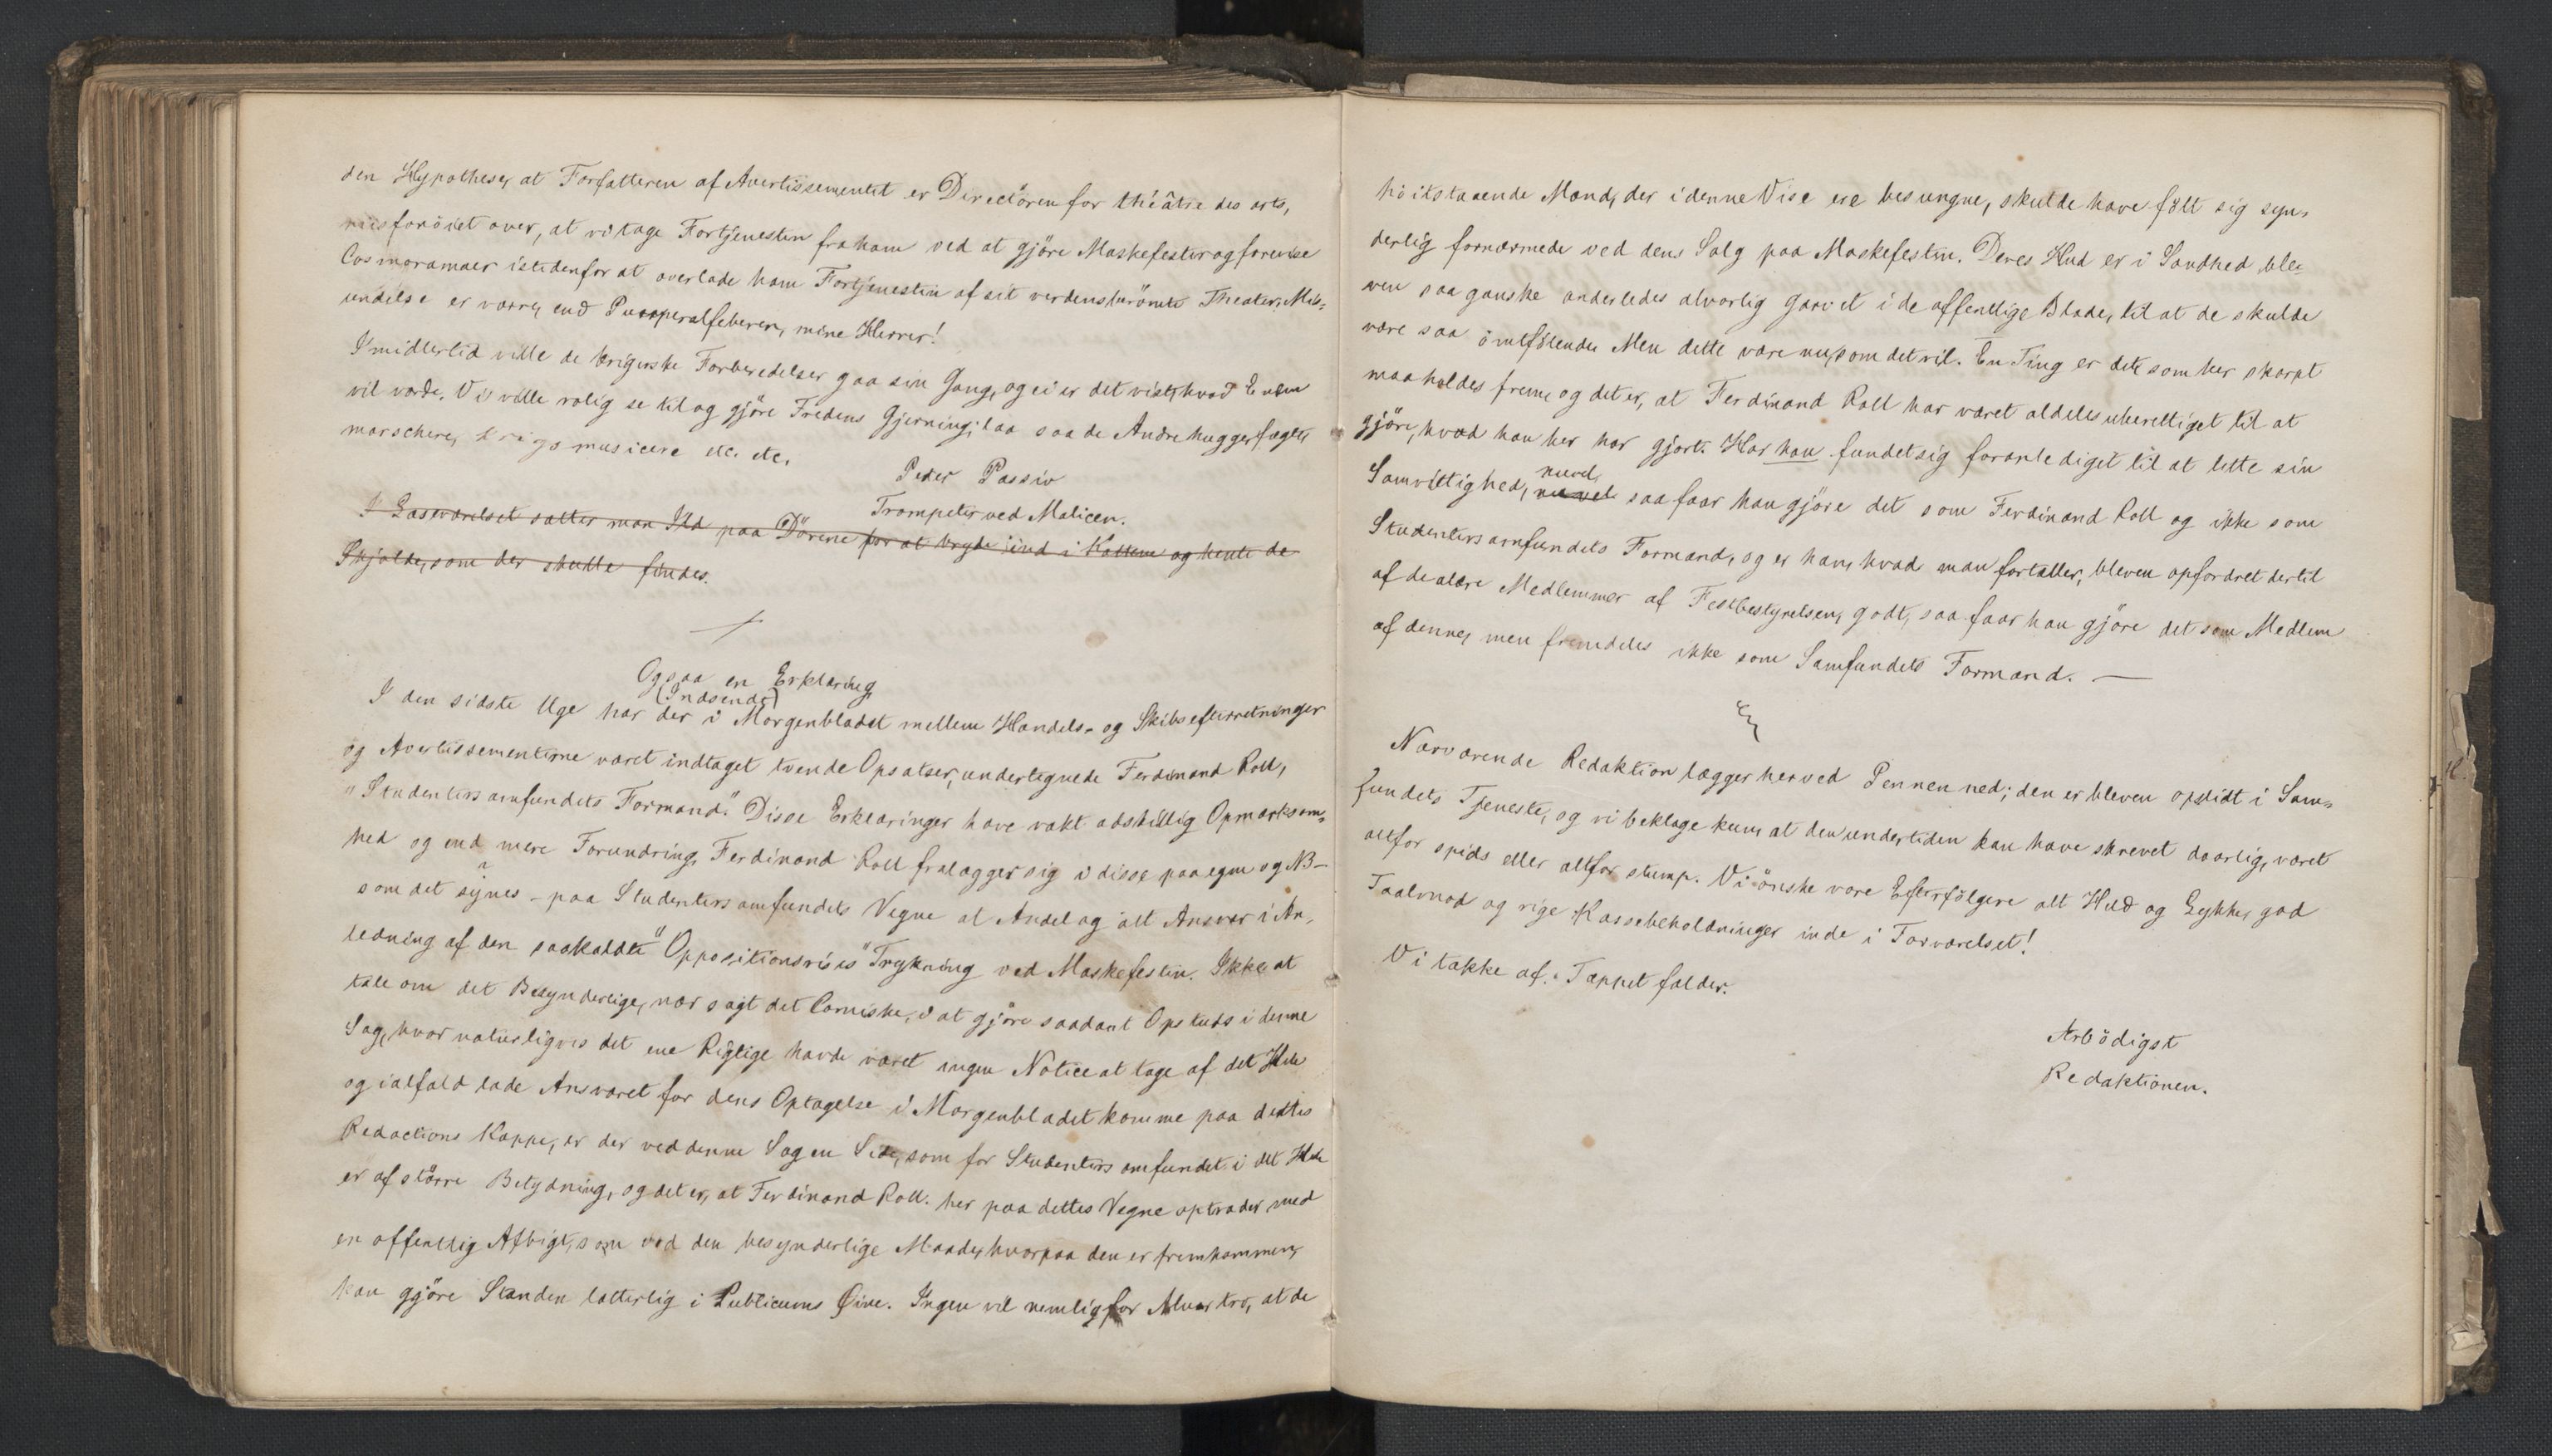 den Hypothese, at Forfatteren af Avertissementet er Directören for théâtre des arts,
misfornöiet over, at vi tage Fortjenesten fra ham ved at gjöre Maskefester og forevise
Cosmoramaer istedenfor at overlade ham Fortjenesten af sit verdensberömte Theater. Mis-
undelse er værre, end Puerperalfeberen, mine Herrer!
Imidlertid ville de krigerske Forberedelser gaa sin Gang, og ei er det vist, hvad Enden
vil vorde. Vi ville rolig se til og gjöre Fredens Gjerning; laa saa de Andre hugge, fægte,
marschere, krigsmusicere etc. etc.
Peter Passiv
Trompeter ved Malicen.
I Læseværelset sætter man Ild paa Dörene for at bryde ind i Kottene og hente de
Skjolde, som der skulle findes.
Ogsaa en Erklæring
(Indsendt)
I den sidste Uge har der i Morgenbladet mellem Handels- og Skibsefterretninger
og Avertissementerne været indtaget tvende Opsatser, undertegnede Ferdinand Roll,
"Studentersamfundets Formand." Disse Erklæringer have vakt adskillig Opmærksom-
hed og end mere Forundring. Ferdinand Roll fralægger sig i disse paa egne og NB –
som det synes – paa Studentersamfundets Vegne al Andel og alt Ansvar i An-
ledning af den saakaldte "Oppositionsvises" Trykning ved Maskefesten. Ikke at
tale om det Besynderlige, nær sagt det Comiske, i at gjöre saadant Opstuds i denne
Sag, hvor naturligvis det ene Rigtige havde været ingen Notice at tage af det Hele
og ialfald lade Ansvaret for dens Optagelse i Morgenbladet komme paa dettes
Redactions Kappe, er der ved denne Sag en Side, som for Studentersamfundet i det Hele
er af större Betydning, og det er, at Ferdinand Roll her paa dettes Vegne optræder med
en offentlig Afbigt, som ved den besynderlige Maade, hvorpaa den er fremkommen,
kan gjöre Standen latterlig i Publicums Øine. Ingen vil nemlig for Alvor tro, at de
höitstaaende Mænd, der i denne Vise ere besungne, skulde have fölt sig syn-
derlig fornærmede ved dens Salg paa Maskefesten. Deres Hud er i Sandhed ble-
ven saa ganske anderledes alvorlig garvet i de offentlige Blade, til at de skulde
være saa ömtfölende. Men dette være nu, som det vil. En Ting er det, som her skarpt
maa holdes frem, og det er, at Ferdinand Roll har været aldeles uberettiget til at
gjöre, hvad han her har gjort. Har han fundet sig foranlediget til at lette sin
Samvittighed, nu vel nuvel, saa faar han gjöre det som Ferdinand Roll og ikke som
Studentersamfundets Formand, og er han, hvad man fortæller, bleven opfordret dertil
af de ældre Medlemmer af Festbestyrelsen, godt, saa faar han gjöre det som Medlem
af denne, men fremdeles ikke som Samfundets Formand. —
Nærværende Redaktion lægger herved Pennen ned; den er bleven opslidt i Sam-
fundets Tjeneste, og vi beklage kun, at den undertiden kan have skrevet daarlig, været
altfor spids eller altfor stump. Vi önske vore Efterfölgere alt Held og Lykke, god
Taalmod og rige Kassebeholdninger inde i Forværelset!
Vi takke af. Tæppet falder.
Ærbödigst
Redaktionen.